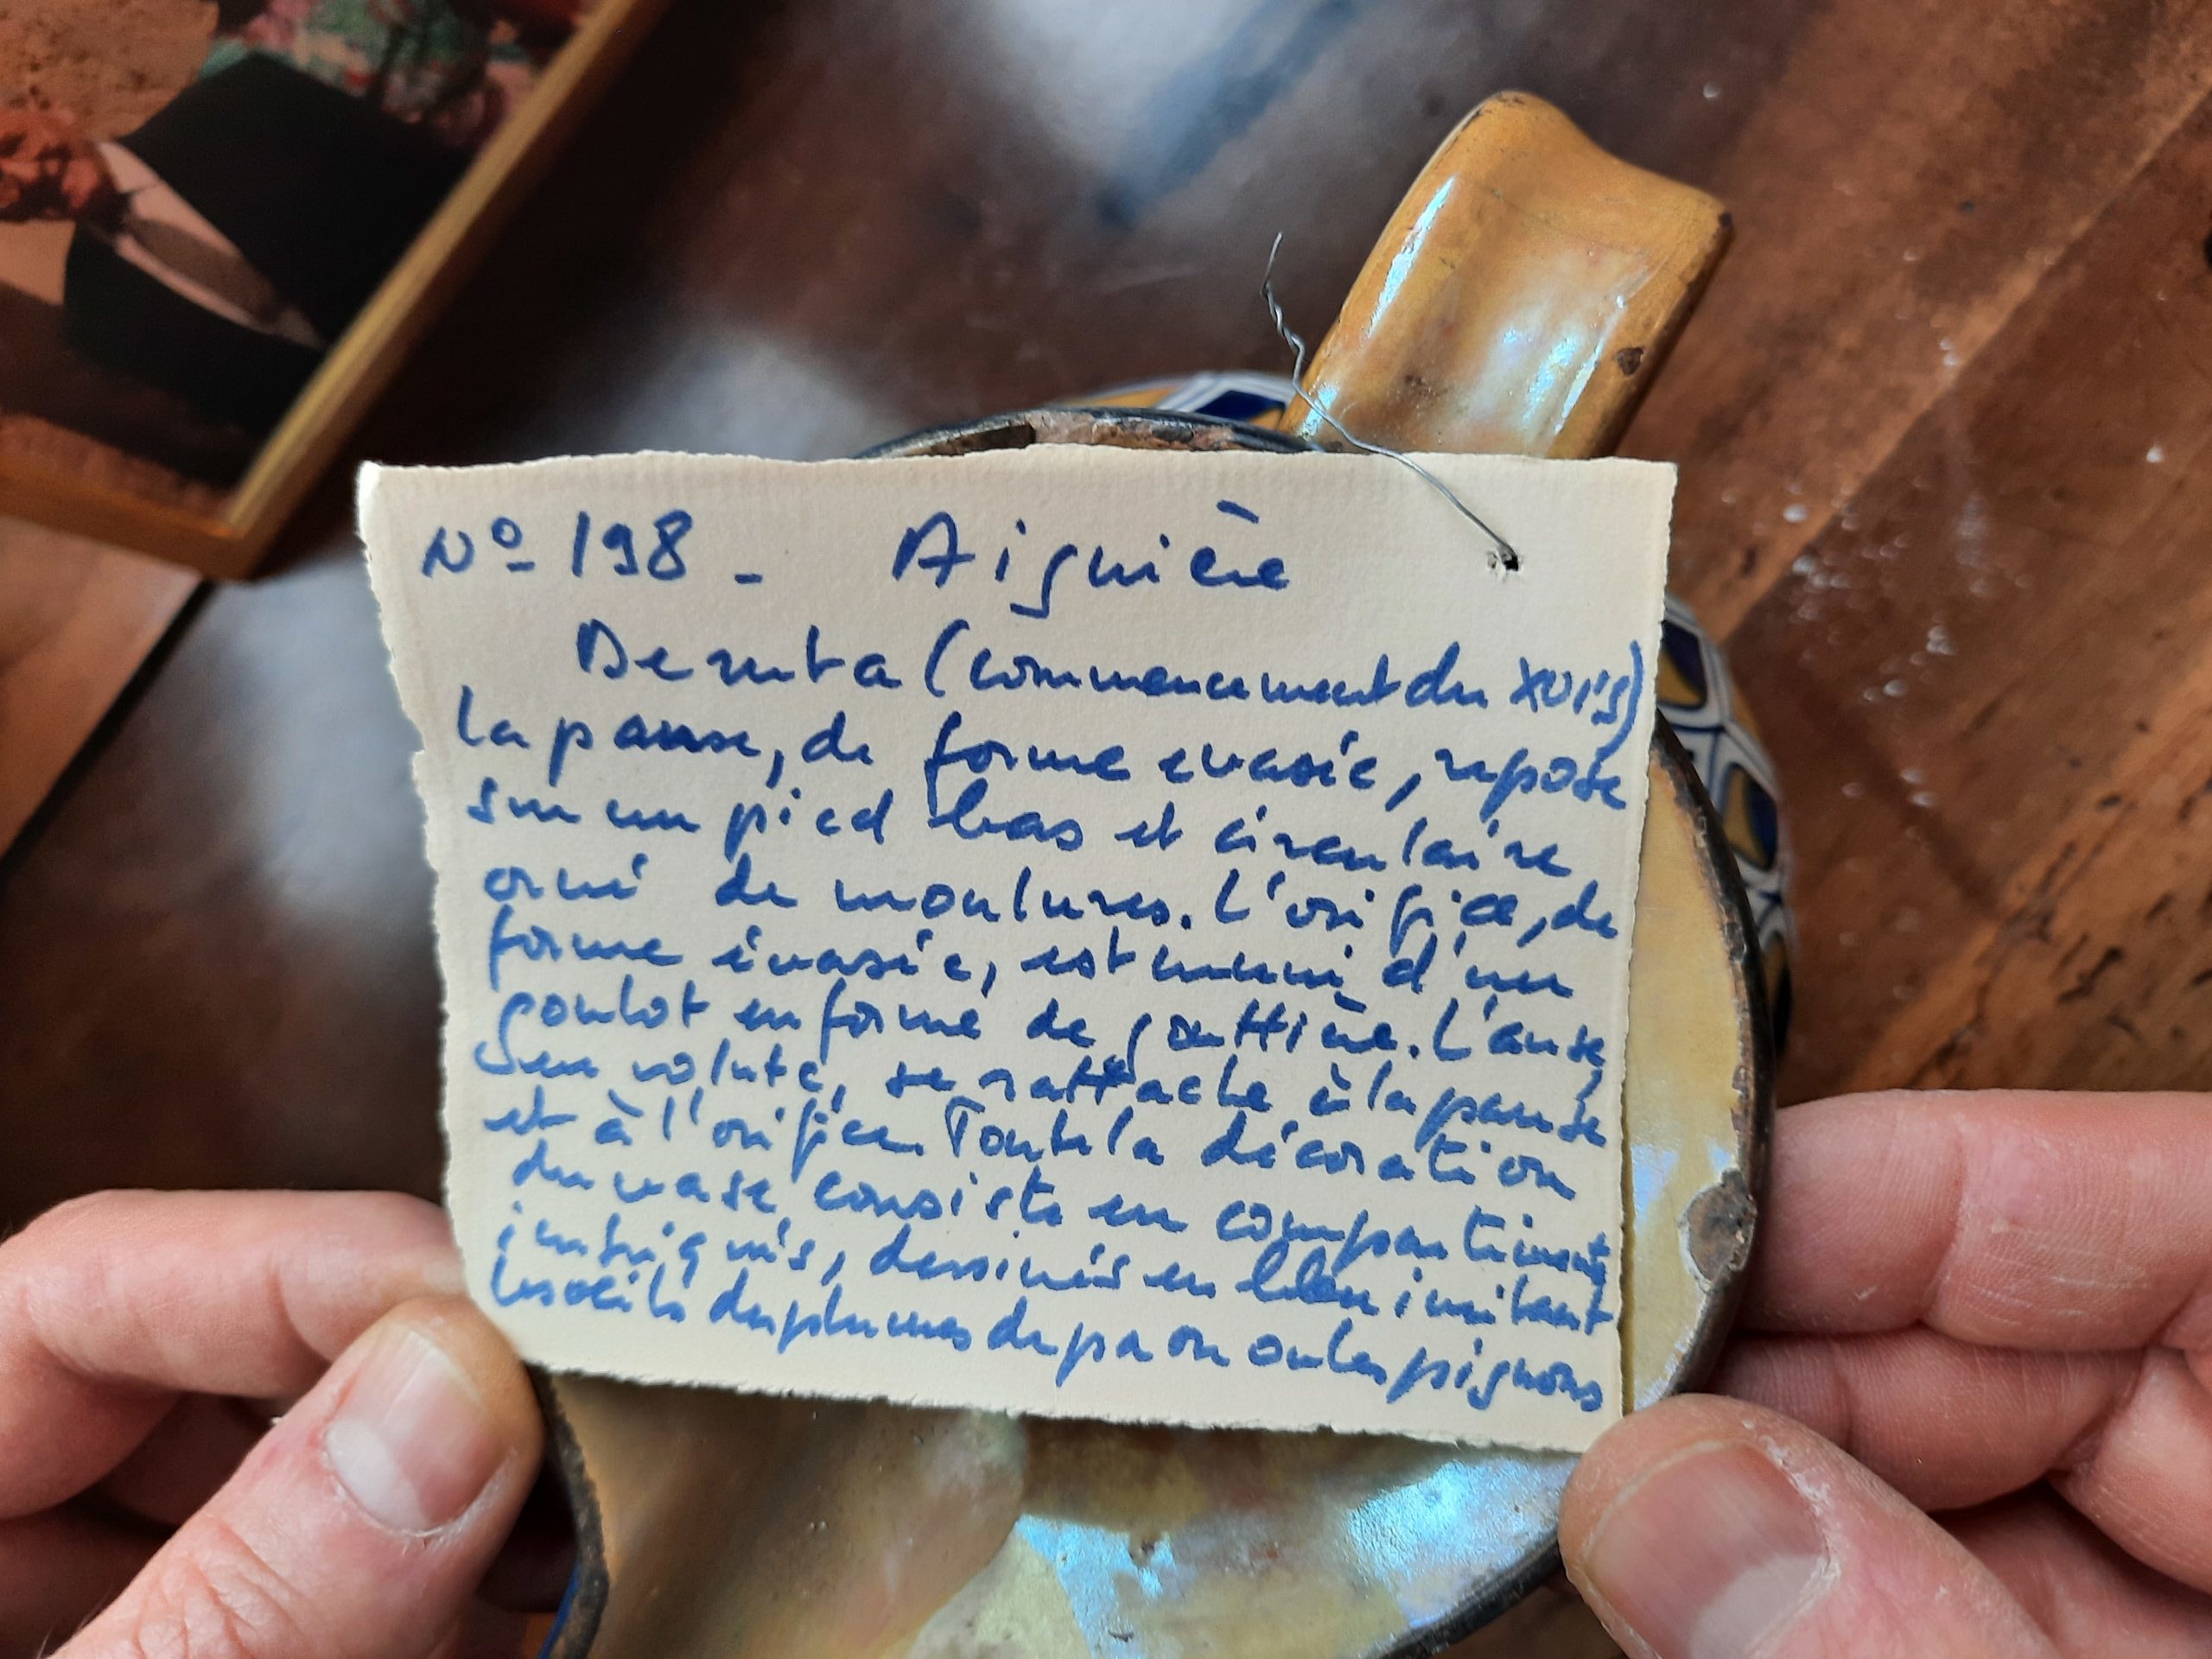 Nº 198 - Aiguière
Deruta (commencement du XVIs)
la panse, de forme evasée, repose
sur un pied bas et circulaire
orné de moulures. L'orifice, de
forme évasée, est muni d'un
goulot en forme de gouttière. L'anse,
en volute, se rattache à la panse
et à l'orifice. Toute la décoration
du vase consiste en compartiments
imbriqués, dessinés en bleu imitant
les oeils des plumes de paon ou les pignons